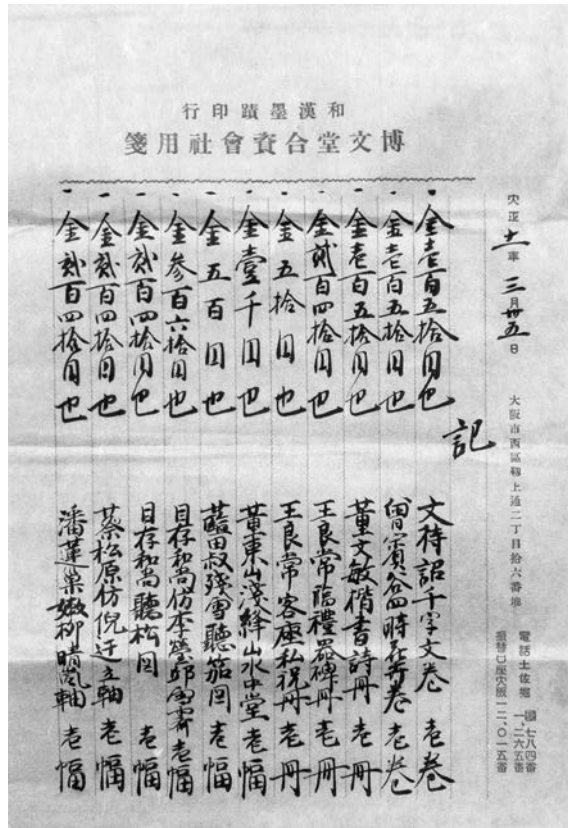 和漢墨蹟印行
博文堂合資會社用箋
大正十一年三月廿五日
大阪市西區靱上通二丁目拾六番地
電話土佐堀 七八四番
一、二六五番
振替口座大阪一二、〇一五番
記
一 金壱百五拾円也 文待詔千字文卷 壱卷
一 金壱百五拾円也 曾賓谷時 卷 壱卷
一 金壱百五拾円也 董文敏楷書詩冊 壱冊
一 金貳百四拾円也 王良常臨禮器碑冊 壱冊
一 金五拾円也 王良常客座私祝冊 壱冊
一 金壹千円也 黄東山淺絳山水中堂 壱幅
一 金五百円也 藍田叔殘雪聽笳図 壱幅
一 金参百六拾円也 目存和尚仿李營邱雪霽 壱幅
一 金貳百四拾円也 目存和尚聽松図 壱幅
一 金貳百四拾円也 蔡松原仿倪迂立軸 壱幅
一 金貳百四拾円也 潘蓮巣嫩柳晴風軸 壱幅